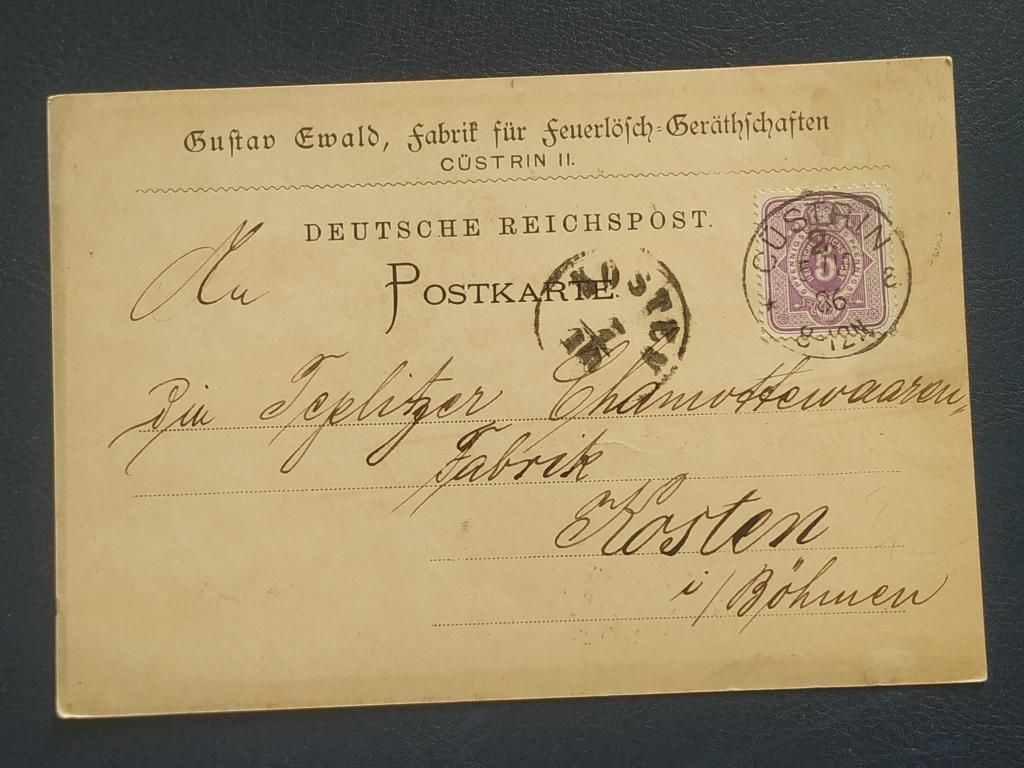 Gustav Ewald, Fabrik für Feuerlösch-Geräthschaften
CÜSTRIN II.
DEUTSCHE REICHSPOST.
POSTKARTE.
An
Die Teplitzer Chamottewaaren-
Fabrik
Kosten
i/Böhmen
CÜSTRIN
86
8-12N
KOSTEN
5